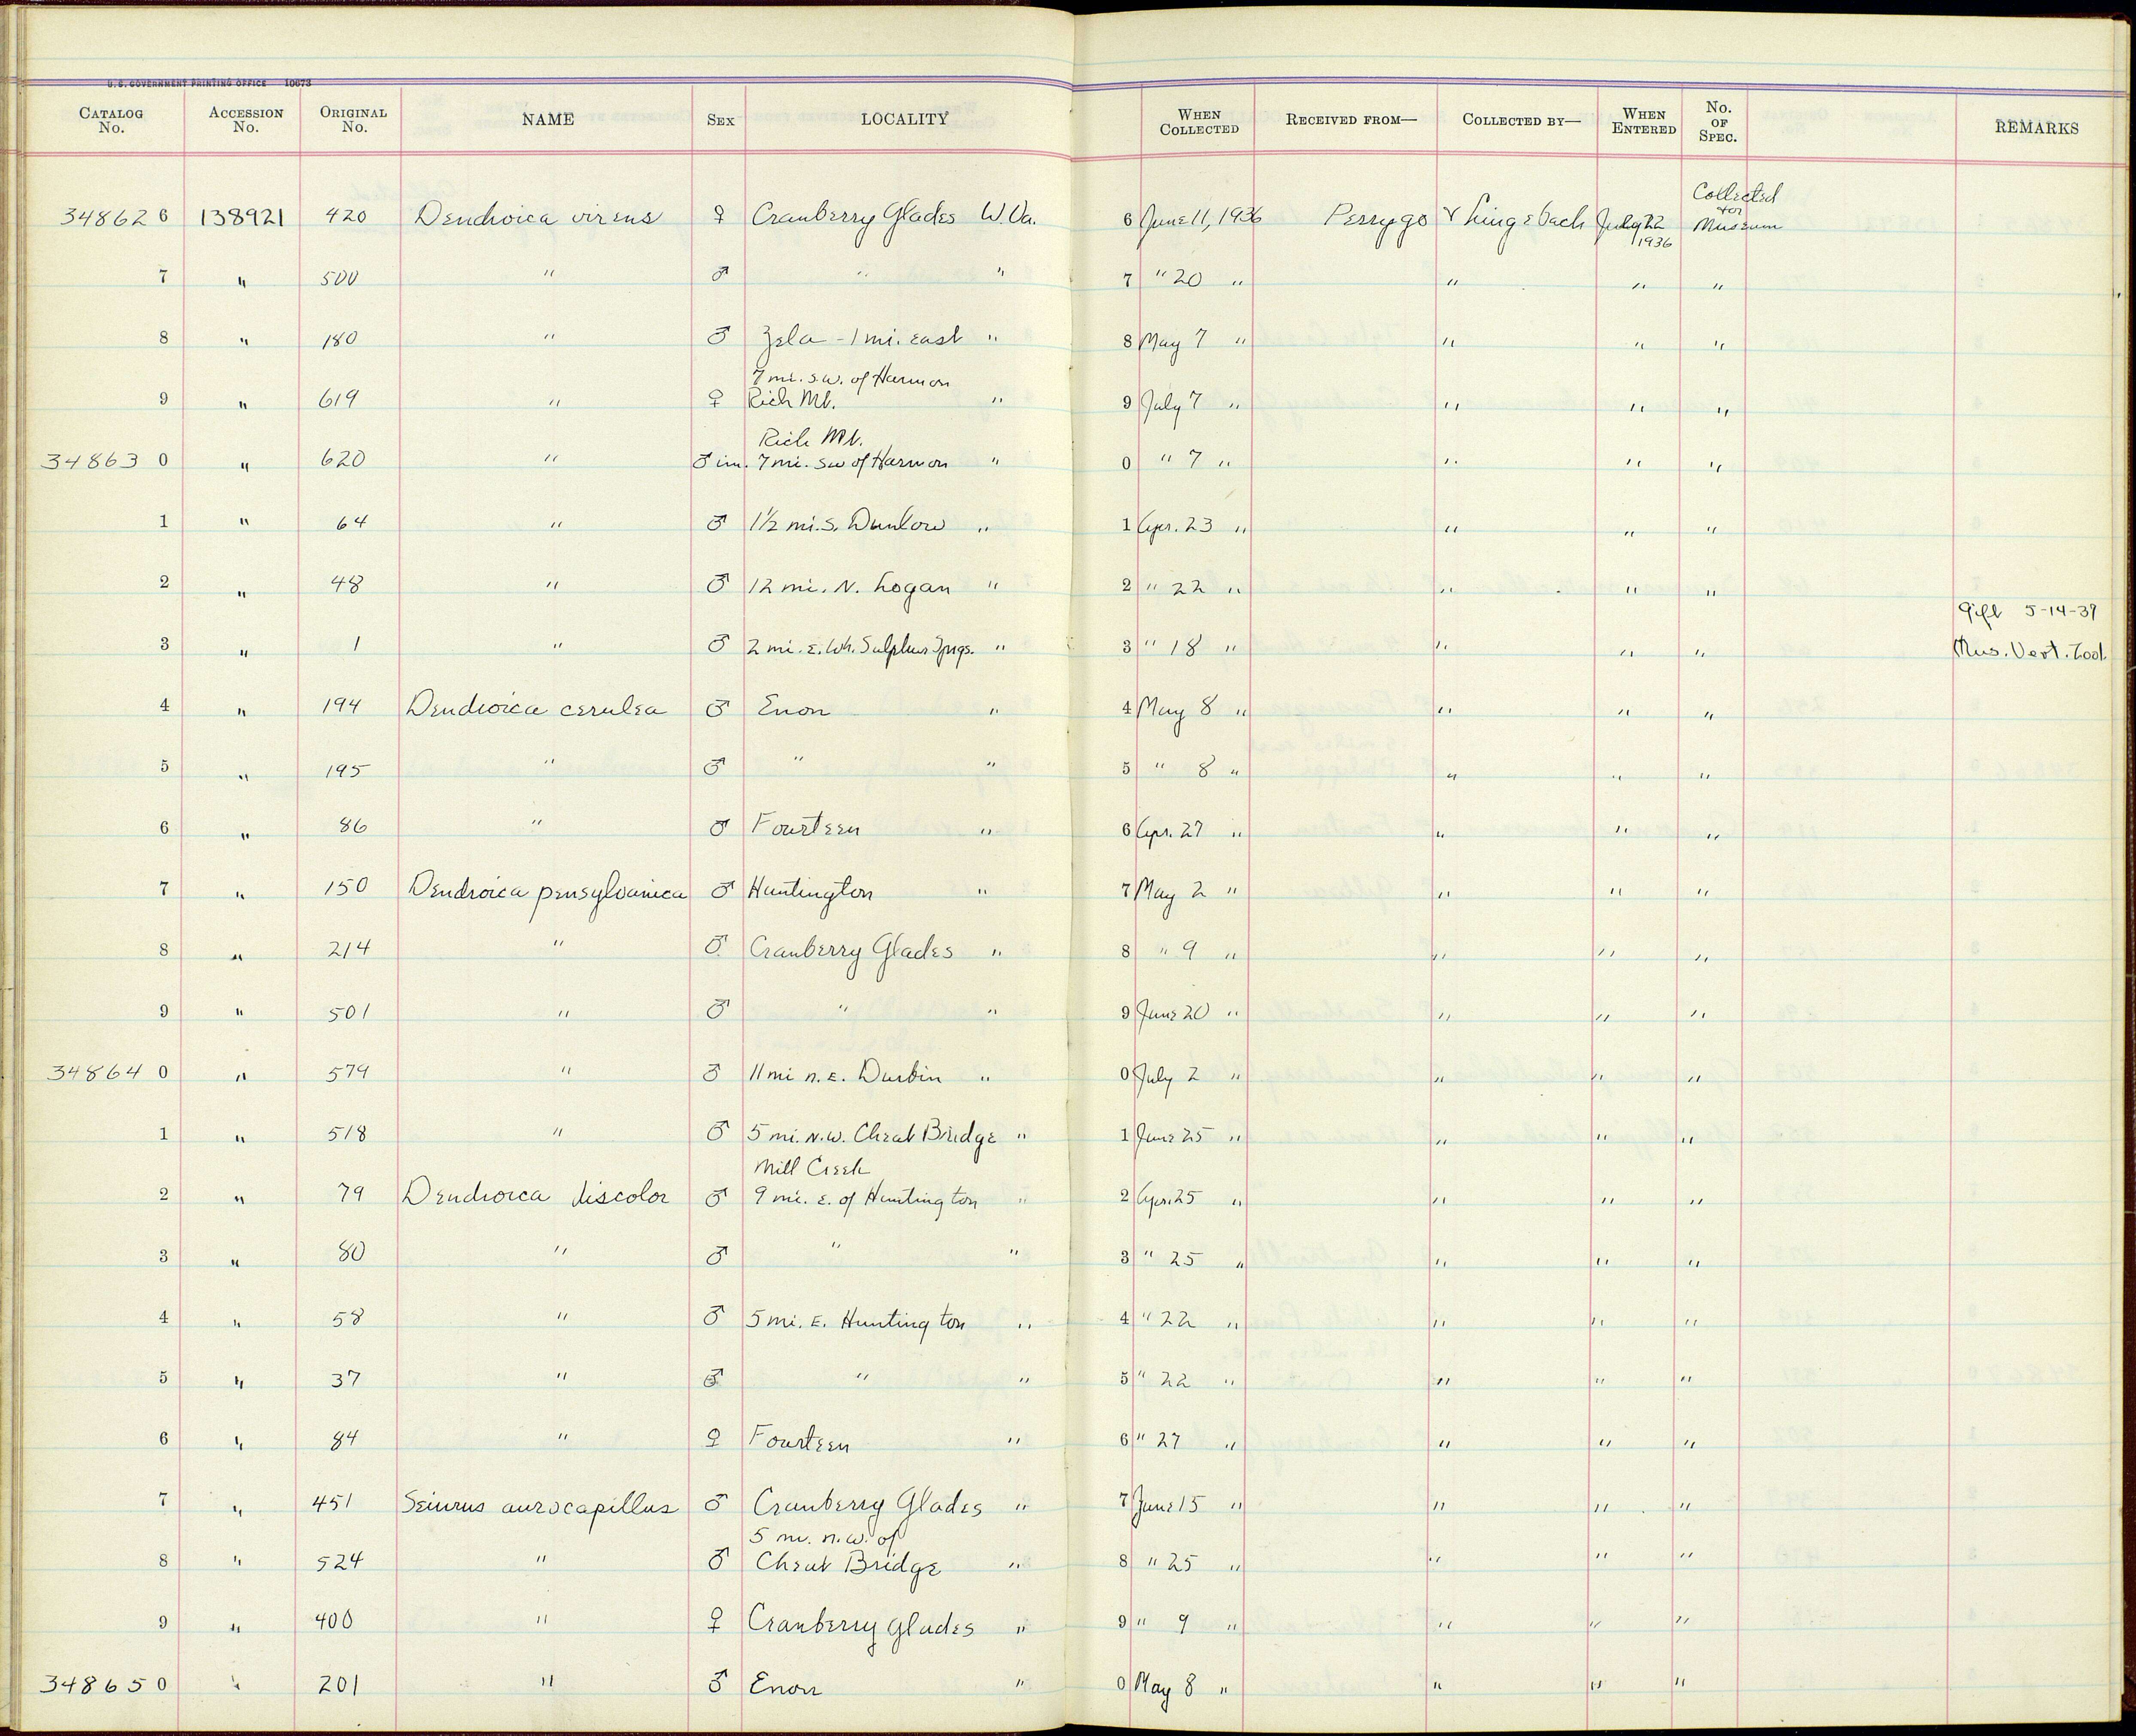 U.S. GOVERNMENT PRINTING OFFICE 10673
CATALOG No. ACCESSION No. ORIGINAL No. NAME SEX LOCALITY WHEN COLLECTED RECEIVED FROM— COLLECTED BY— WHEN ENTERED No. OF SPEC. REMARKS
348626 138921 420 Dendroica virens ♀ Cranberry Glades W.Va. 6 June 11, 1936 Perrygo & Lingebach July 22 1936 Collected for Museum
7 " 500 " ♂ " " 7 " 20 " " " "
8 " 180 " ♂ Zela - 1 mi. east " 8 May 7 " " " "
7 mi. s.w. of Harmon
9 " 619 " ♀ Rich Mt. " 9 July 7 " " " "
Rich Mt.
348630 " 620 " ♂ im. 7 mi. sw of Harmon " 0 " 7 " " " "
1 " 64 " ♂ 1½ mi. s. Dunlow " 1 Apr. 23 " " " "
2 " 48 " ♂ 12 mi. N. Logan " 2 " 22 " " " "
Gift 5-14-37
3 " 1 " ♂ 2 mi. E. Wh. Sulphur Spgs. " 3 " 18 " " " " Mus. Vert. Zool.
4 " 194 Dendroica cerulea ♂ Enon " 4 May 8 " " " "
5 " 195 " ♂ " " 5 " 8 " " " "
6 " 86 " ♂ Fourteen " 6 Apr. 27 " " " "
7 " 150 Dendroica pensylvanica ♂ Huntington " 7 May 2 " " " "
8 " 214 " ♂ Cranberry Glades " 8 " 9 " " " "
9 " 501 " ♂ " " 9 June 20 " " " "
348640 " 579 " ♂ 11 mi n.E. Durbin " 0 July 2 " " " "
1 " 518 " ♂ 5 mi. N.W. Cheat Bridge " 1 June 25 " " " "
Mill Creek
2 " 79 Dendroica discolor ♂ 9 mi. E. of Huntington " 2 Apr. 25 " " " "
3 " 80 " ♂ " " 3 " 25 " " " "
4 " 58 " ♂ 5 mi. E. Huntington " 4 " 22 " " " "
5 " 37 " ♂ " " 5 " 22 " " " "
6 " 84 " ♀ Fourteen " 6 " 27 " " " "
7 " 451 Seiurus aurocapillus ♂ Cranberry Glades " 7 June 15 " " " "
5 mi. n.w. of
8 " 524 " ♂ Cheat Bridge " 8 " 25 " " " "
9 " 400 " ♀ Cranberry Glades " 9 " 9 " " " "
348650 " 201 " ♂ Enon " 0 May 8 " " " "